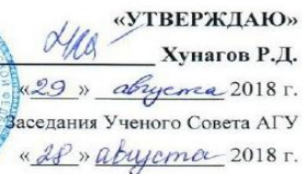 «УТВЕРЖДАЮ»
Хунагов Р.Д.
«29» августа 2018 г.
Заседания Ученого Совета АГУ
«28» августа 2018 г.